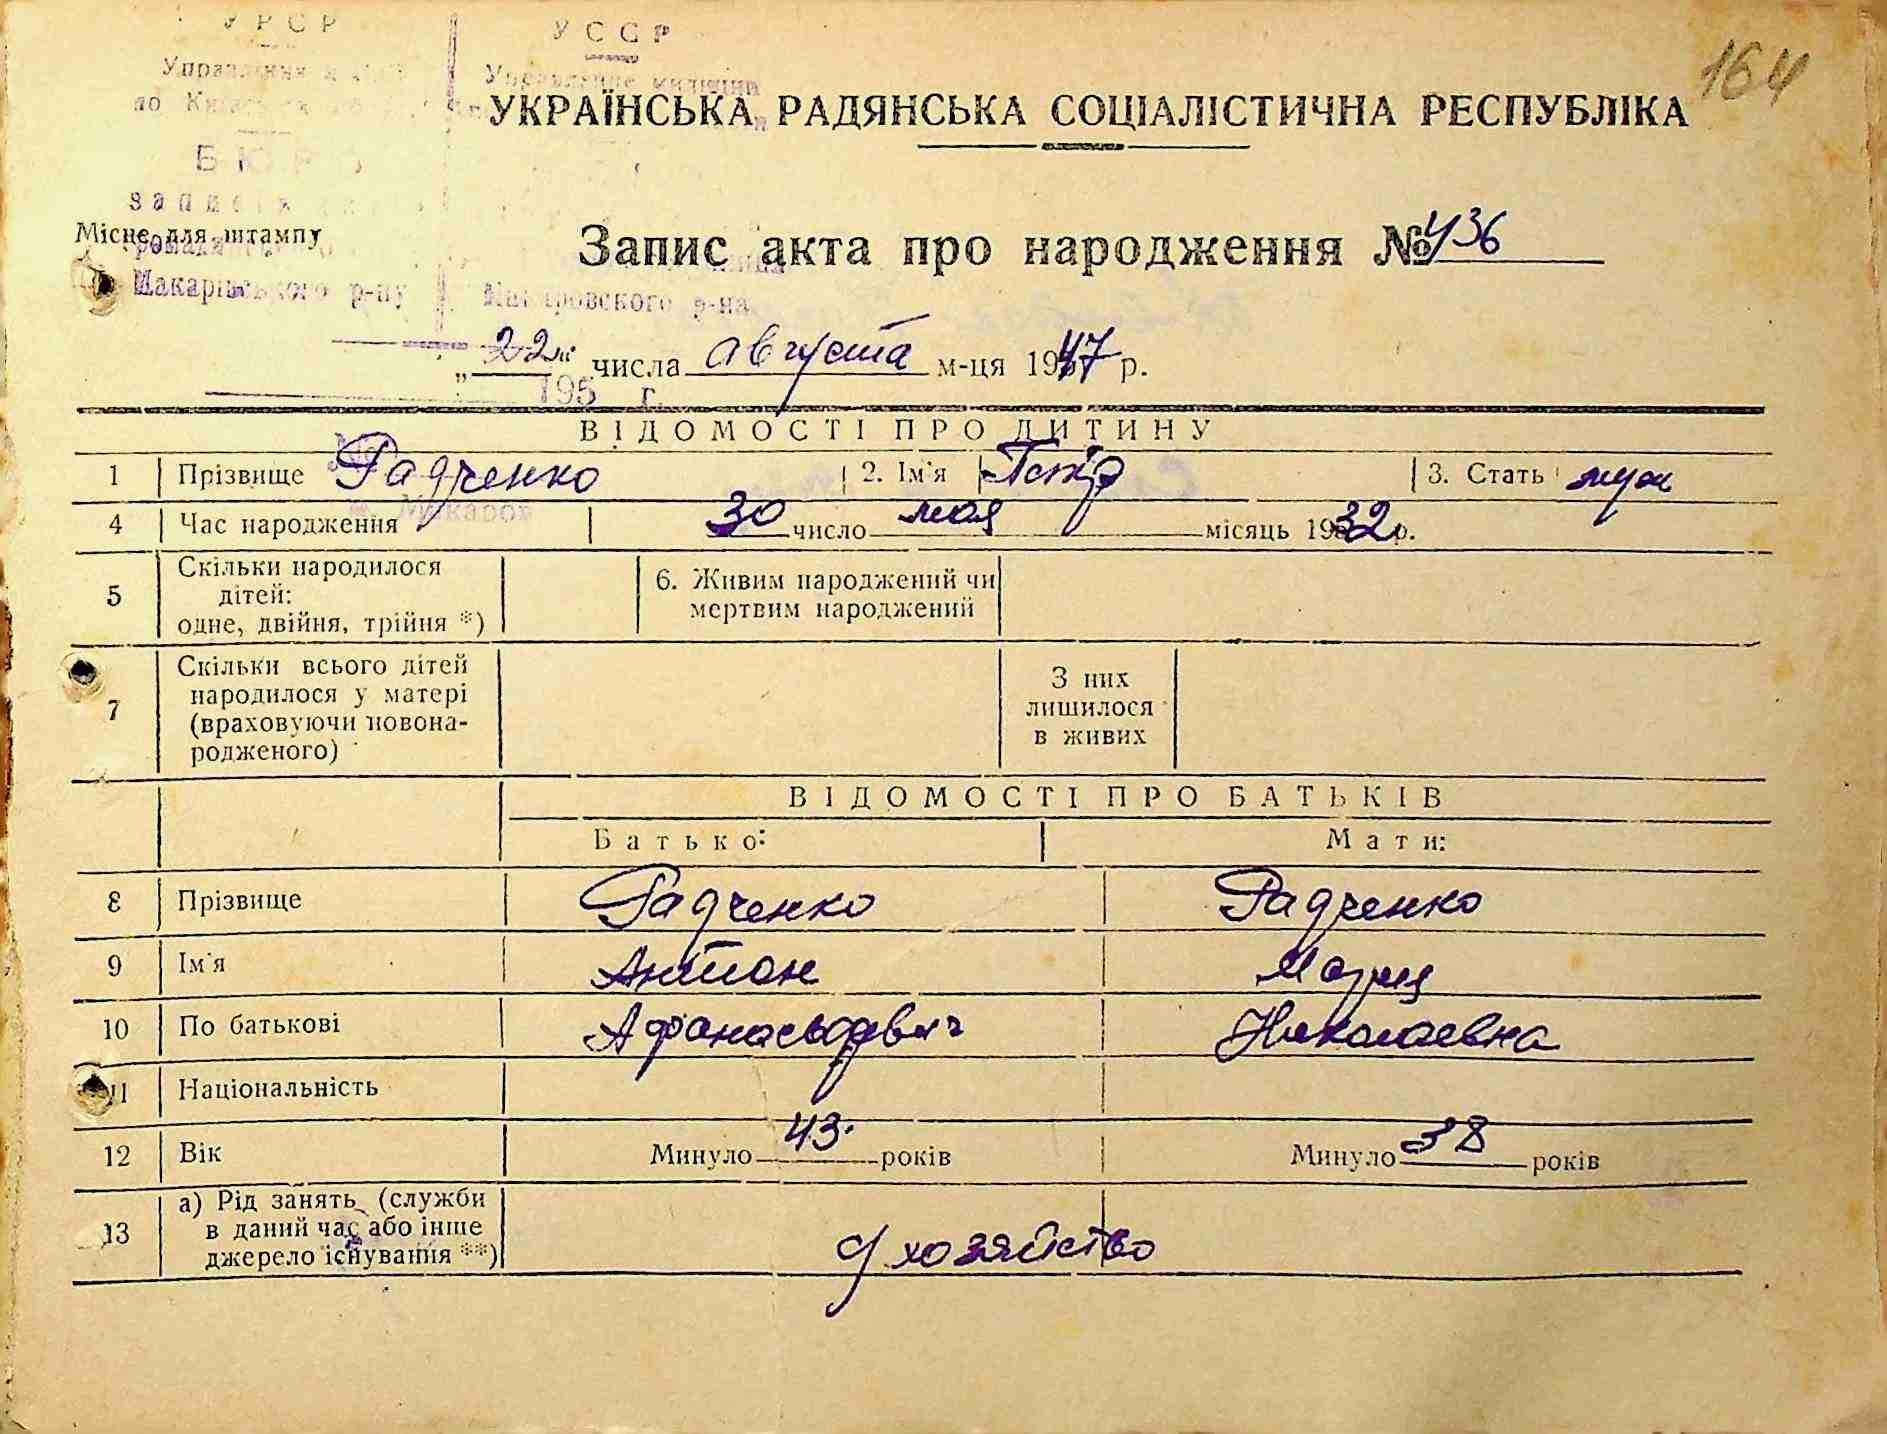 164
У Р С Р
У С С Р
Управління
Управление милиции
по
УКРАЇНСЬКА РАДЯНСЬКА СОЦІАЛІСТИЧНА РЕСПУБЛІКА
Б Ю Р О
Місце для штампу
Запис акта про народження № 436
Макарівського р-ну
Макаровского р-на
„ 22 " числа августа м-ця 1947 р.
195 г.
ВІДОМОСТІ ПРО ДИТИНУ
1 Прізвище Радченко 2. Ім'я 3. Стать муж
Макаров
4 Час народження 30 число мая місяць 1932 р.
5 Скільки народилося дітей: одне, двійня, трійня *)
6. Живим народжений чи мертвим народжений
7 Скільки всього дітей народилося у матері (враховуючи новона-родженого)
З них лишилося в живих
ВІДОМОСТІ ПРО БАТЬКІВ
Батько: Мати:
8 Прізвище Радченко Радченко
9 Ім'я Антон Мария
10 По батькові Афанасьевич Николаевна
11 Національність
12 Вік Минуло 43 років Минуло 38 років
13 а) Рід занять (служби в даний час або інше джерело існування **) д хозяйство